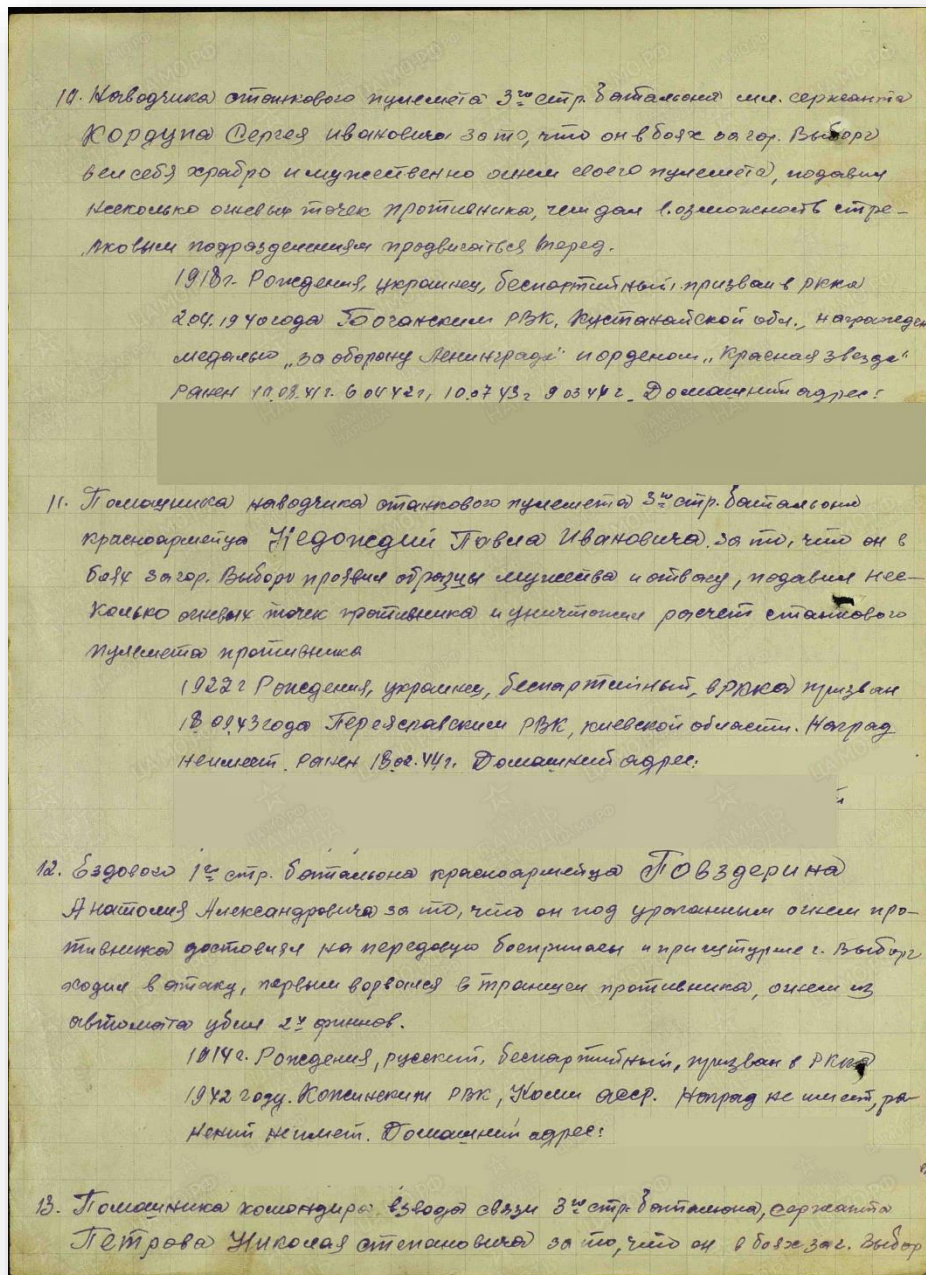 10. Наводчика станкового пулемета 3го стр. батальона мл. сержанта
Кордупа Сергея Ивановича за то, что он в боях за гор. Выборг
вел себя храбро и мужественно огнем своего пулемета, подавил
несколько огневых точек противника, чем дал возможность стре-
лковым подразделениям продвигаться вперед.
1918г. Рождения, украинец, беспартийный, призван в РККА
2.04.1940 года РВК, Кустанайской обл., награжден
медалью "За оборону Ленинграда" и орденом "Красная звезда"
Ранен 6 04 42г, 10.07 43г 9 03 44г. Домашний адрес:
11. Помощника наводчика станкового пулемета 3го стр. батальона
красноармейца Недождий Павла Ивановича. За то, что он в
боях за гор. Выборг проявил образцы мужества и отвагу, подавил нес-
колько огневых точек противника и уничтожил расчет станкового
пулемета противника
1922г Рождения, украинец, беспартийный, в РККА призван
18 09.43 года Переяславским РВК, киевской области. Наград
не имеет. Ранен 18.02.44г. Домашний адрес:
12. Ездового 1го стр. батальона красноармейца Повздерина
Анатолия Александровича за то, что он под ураганным огнем про-
тивника доставлял на передовую боеприпасы и при штурме г. Выборг
ходил в атаку, первым ворвался в траншеи противника, огнем из
автомата убил 2х финнов.
1914г. Рождения, русский, беспартийный, призван в РККА
1942 году. Кожвинским РВК, Коми асср. Наград не имеет, ра-
нений не имеет. Домашний адрес:
13. Помощника командира взвода связи 3го стр. батальона, сержанта
Петрова Николая Степановича за то, что он в боях за г. Выбор